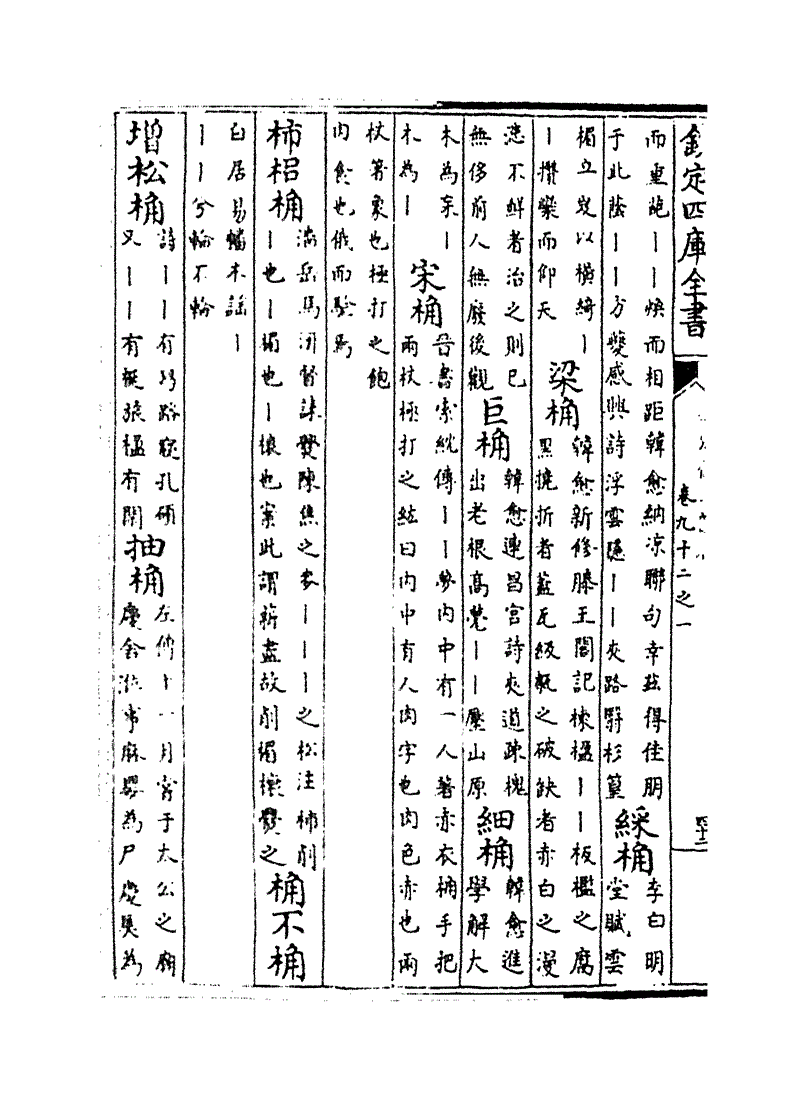 欽定四庫全書
卷九十二之一
而重䟽丨丨煥而相距韓愈納凉聯句幸兹得佳朋
于此䕃丨丨方夔感興詩浮雲隱丨丨夾路翳杉篁
綵桷
李白明
堂賦雲
楣立岌以橫綺丨
丨攢欒而仰天
梁桷
韓愈新修滕王閣記棟楹丨丨板檻之腐
黑撓折者蓋瓦級甎之破缺者赤白之漫
漶不鮮者治之則已
無侈前人無廢後觀
巨桷
韓愈連昌宫詩夾道疎槐
出老根高甍丨丨壓山原
細桷
韓愈進
學解大
木為杗丨
木為丨
宋桷
晉書索紞傳丨丨夢内中有一人著赤衣桷手把
兩杖極打之紞曰内中有人肉字也肉色赤也兩
杖箸象也極打之飽
肉食也俄而驗焉
柿梠桷
潘岳馬汧督誄㸑陳焦之麥丨丨丨之松注柿削
丨也丨楣也丨榱也案此謂薪盡故削楣榱㸑之
桷不桷
白居易蟠木謡丨
丨丨兮輪不輪
增松桷
詩丨丨有舄路寢孔碩
又丨丨有梴旅楹有閑
抽桷
左傳十一月嘗于太公之廟
慶舍涖事麻嬰為尸慶奊為